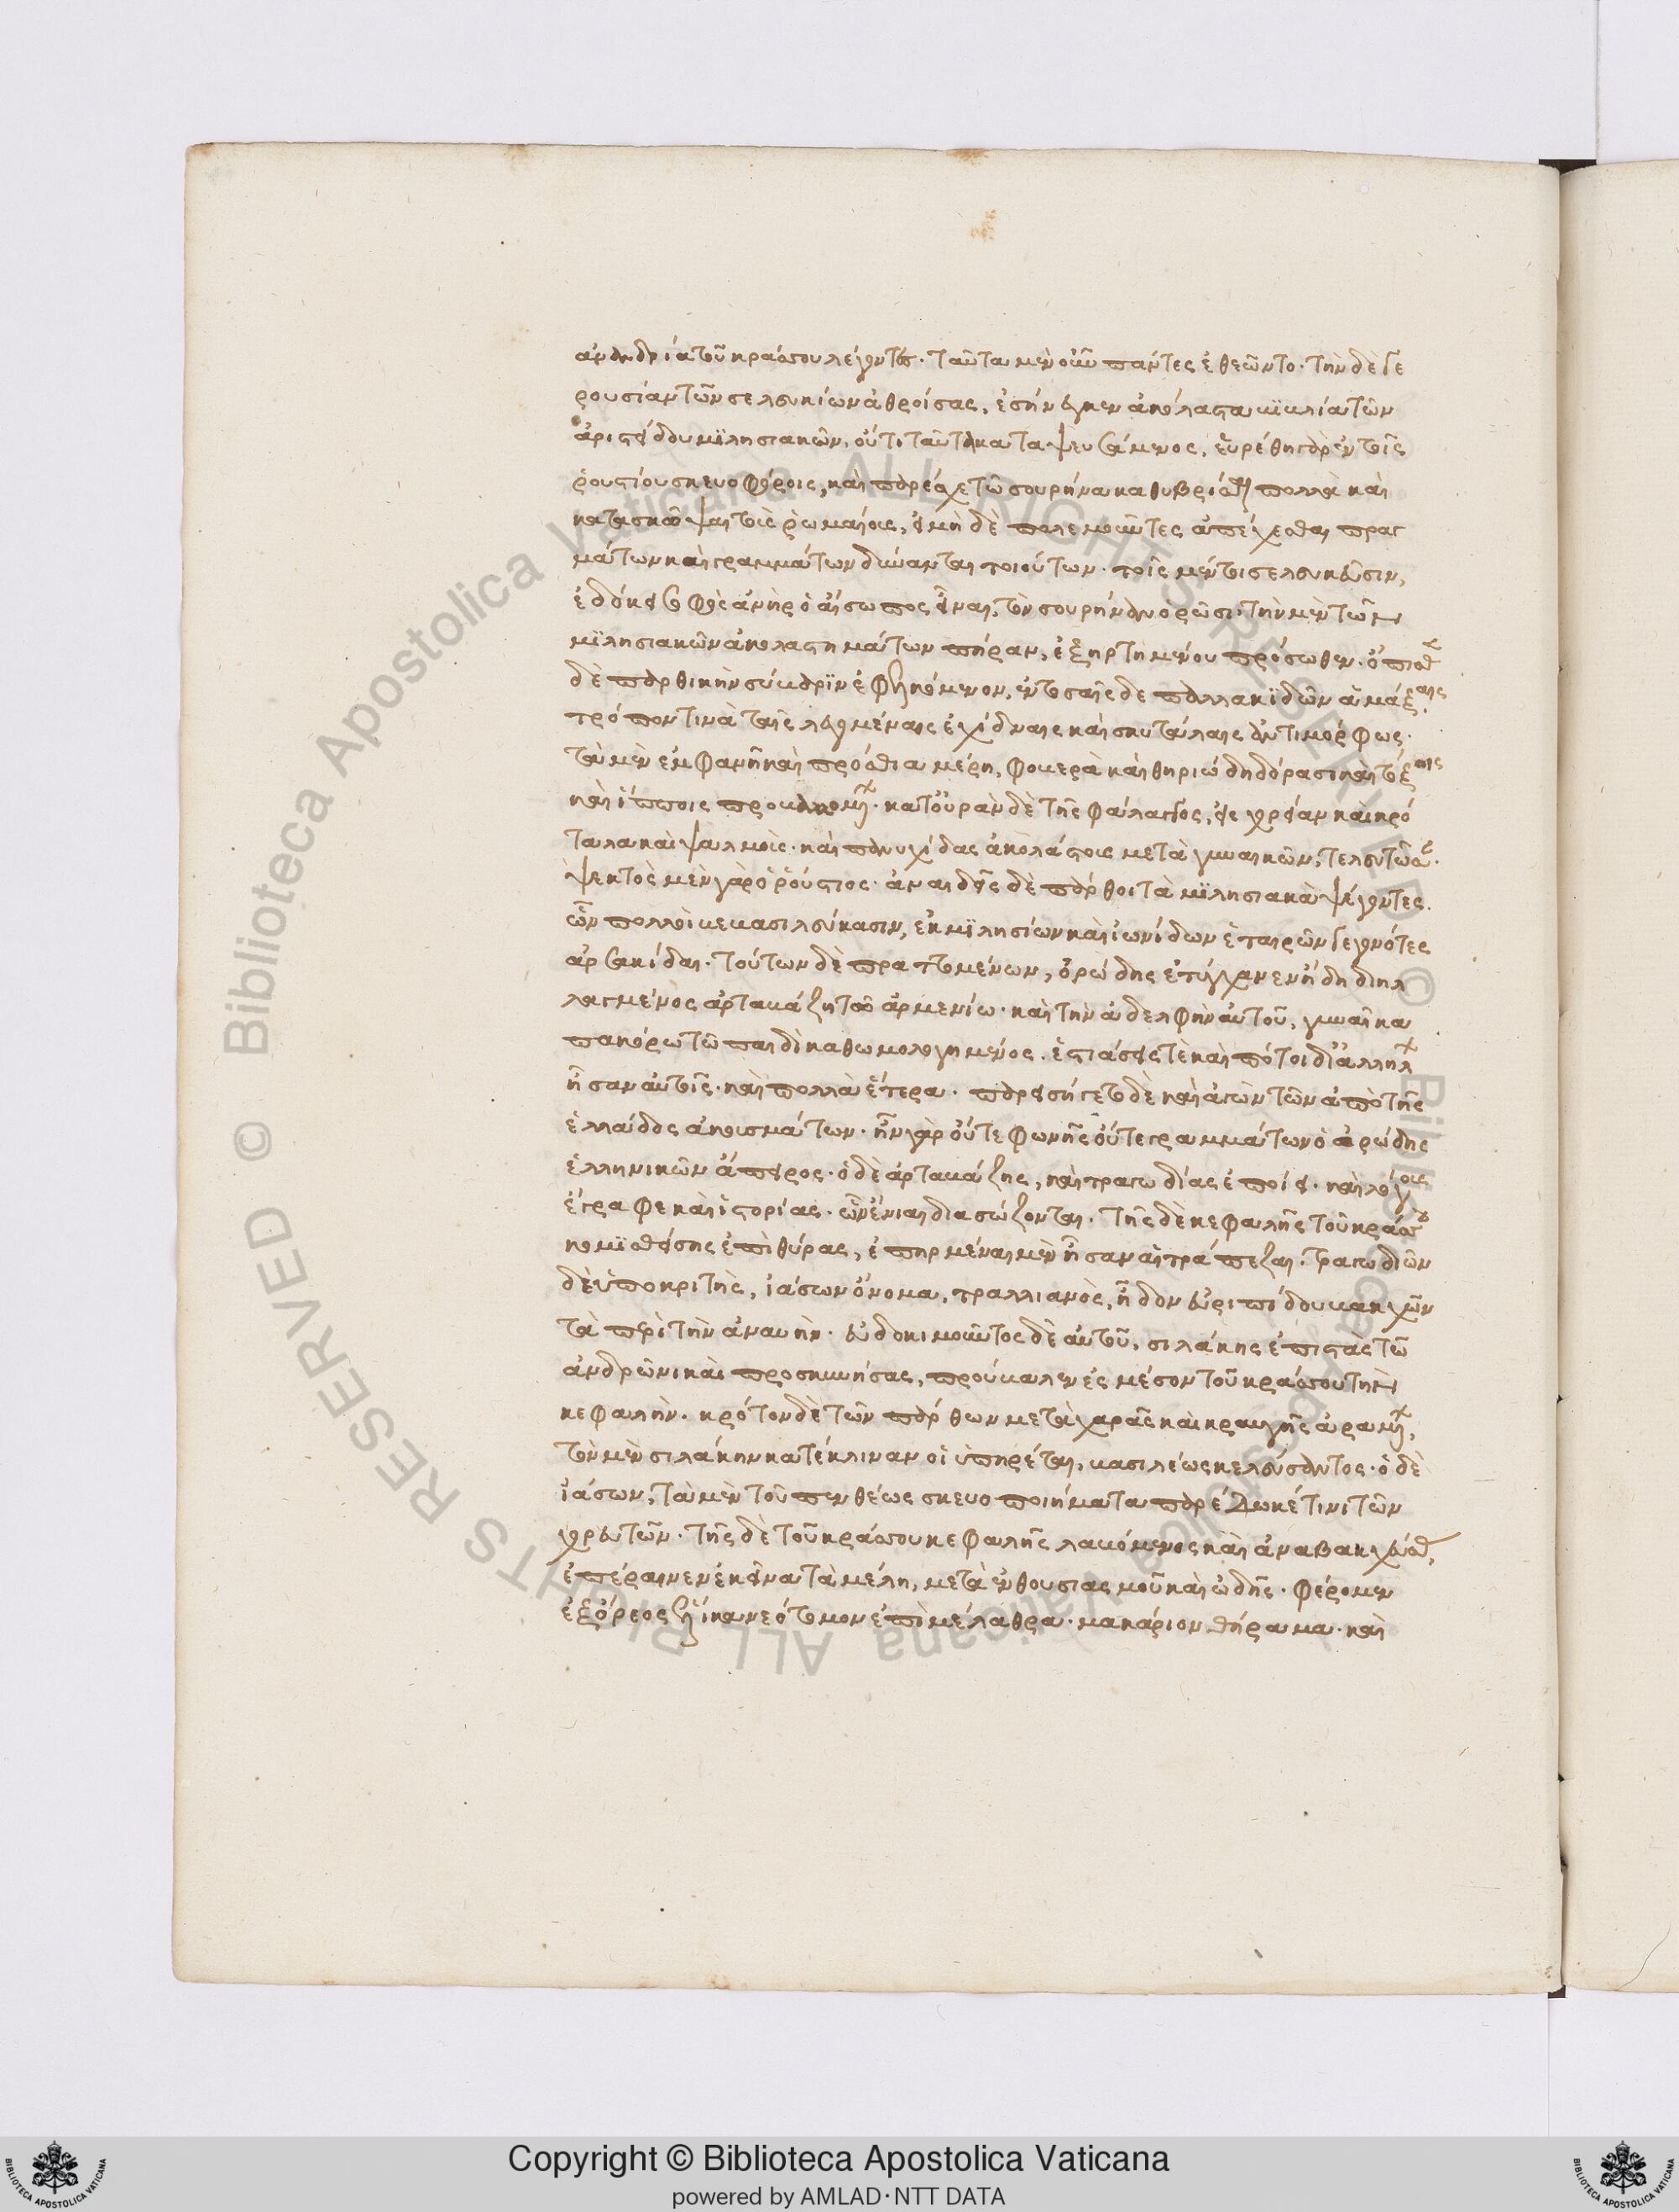 ἀνανδρία τοῦ κράσσου λέγοντος. ταῦτα μὲν οὖν πάντες ἐθεῶντο. τὴν δὲ γε
ρουσίαν τῶν σελευκίων ἀθροίσας, εἰσήνεγκεν ἀκόλαστα βιβλία τῶν
ἀριστείδου μιλησιακῶν, οὔτι ταῦτα καταψευσάμενος, εὑρέθη γὰρ ἐν τοῖς
ῥουστίου σκευοφόροις, καὶ παρέσχε τῶ σουρήνα καθυβρίσαι πολλὰ καὶ
κατασκῶψαι τοὺς ῥωμαίους, εἰ μὴ δὲ πολεμοῦντες ἀπέχεσθαι πραγ
μάτων καὶ γραμμάτων δύνανται τοιούτων. τοῖς μέντοι σελευκεῦσιν,
ἐδόκει σοφὸς ἀνὴρ ὁ αἴσωπος εἶναι, τὸν σουρήναν ὁρῶσι. τὴν μὲν τῶν
μιλησιακῶν ἀκολαστημάτων πήραν, ἐξηρτημένον πρόσωθεν. ὄπισθεν
δὲ παρθικὴν σύβαριν ἐφελκόμενον, ἐν τοσαῖς δε παλλακίδων ἁμάξαις,
τρόπον τινὰ ταῖς λεγομέναις ἐχίδναις καὶ σκυτάλαις ἀντιμόρφως.
τὰ μὲν ἐμφανῆ καὶ πρόσθια μέρη, φοβερὰ καὶ θηριώδη δόρασι καὶ τόξοις
καὶ ἵπποις προβαλλομένην. κατ' οὐρὰν δὲ τῆς φάλαγγος, εἰς χορείαν καὶ κρό
ταλα καὶ ψαλμοὺς. καὶ παννυχίδας ἀκολάστους μετὰ γυναικῶν, τελευτῶσαν.
ψεκτὸς μὲν γὰρ ὁ ῥούστος. ἀναιδεῖς δὲ πάρθοι τὰ μιλησιακὰ ψέγοντες.
ὧν πολλοὶ βεβασιλεύκασιν, ἐκ μιλησίων καὶ ἰωνίδων ἑταιρῶν γεγονότες
ἀρσακίδαι. τούτων δὲ πραττομένων, ὀρώδης ἐτύγχανεν ἤδη διηλ
λαγμένος ἀρταβάζη τῶ ἀρμενίω. καὶ τὴν ἀδελφὴν αὐτοῦ, γυναῖκα
πακόρω τῶ παιδὶ καθωμολογημένος. ἑστιάσεις τὲ καὶ πότοι δι' ἀλλήλων
ἦσαν αὐτοῖς. καὶ πολλὰ ἕτερα. παρεισήγετο δὲ καὶ ἀγὼν τῶν ἀπὸ τῆς
ἑλλάδος ἀκουσμάτων. ἦν γὰρ οὔτε φωνῆς οὔτε γραμμάτων ὁ ὀρώδης
ἑλληνικῶν ἄπειρος. ὁ δὲ ἀρταβάζης, καὶ τραγωδίας ἐποίει. καὶ λόγους
ἔγραφε καὶ ἱστορίας. ὧν ἔνιαι διασώζονται. τῆς δὲ κεφαλῆς τοῦ κράσσου
κομισθείσης ἐπὶ θύρας, ἐπηρμέναι μὲν ἦσαν αἱ τράπεζαι. τραγωδιῶν
δὲ ὑποκριτὴς, ἰάσων ὄνομα, τραλλιανὸς, ἦδον εὐριπίδου βακχῶν
τὰ περὶ τὴν ἀγαυὴν. εὐδοκιμοῦντος δὲ αὐτοῦ, σιλάκης ἐπιστὰς τῶ
ἀνδρῶνι καὶ προσκυνήσας, προύβαλεν ἐς μέσον τοῦ κράσσου τὴν
κεφαλὴν. κρότον δὲ τῶν πάρθων μετὰ χαρᾶς καὶ κραυγῆς ἀραμένων,
τὸν μὲν σιλάκην κατέκλιναν οἱ ὑπηρέται, βασιλέως κελεύσαντος. ὁ δὲ
ἰάσων, τὰ μὲν τοῦ πενθέως σκευοποιήματα παρέδωκέ τινι τῶν
χορευτῶν. τῆς δὲ τοῦ κράσσου κεφαλῆς λαβόμενος καὶ ἀναβακχεύσας,
ἐπέραινεν ἐκεῖνα τὰ μέλη, μετὰ ἐνθουσιασμοῦ καὶ ὠδῆς. φέρομεν
ἐξ ὄρεος ἕλικα νεότομον ἐπὶ μέλαθρα. μακάριον θήραμα. καὶ
© Biblioteca Apostolica Vaticana ALL RIGHTS RESERVED
Copyright © Biblioteca Apostolica Vaticana
powered by AMLAD·NTT DATA